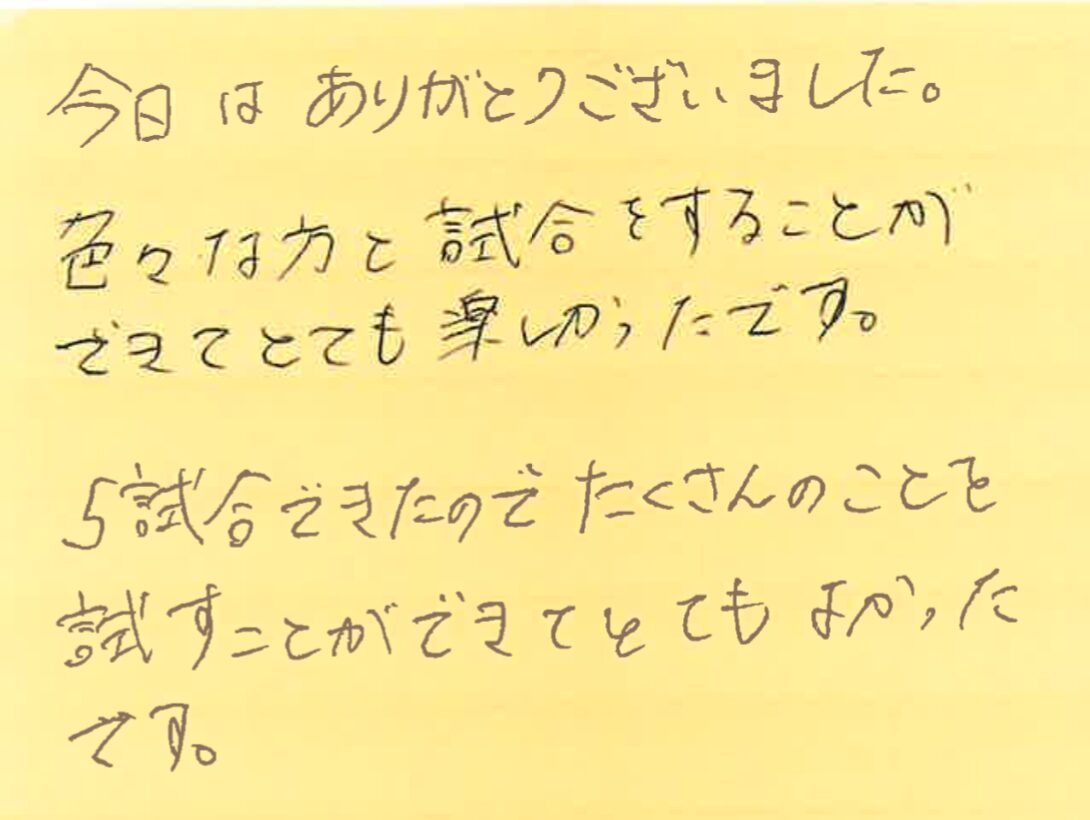 今日はありがとうございました。
色々な方と試合をすることが
できてとても楽しかったです。
5試合できたのでたくさんのことを
試すことができてとてもよかった
です。